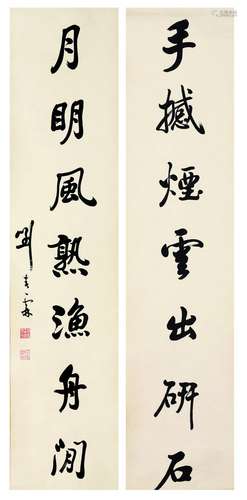 手撼煙雲出研石
月明風熟漁舟閒
劉春霖